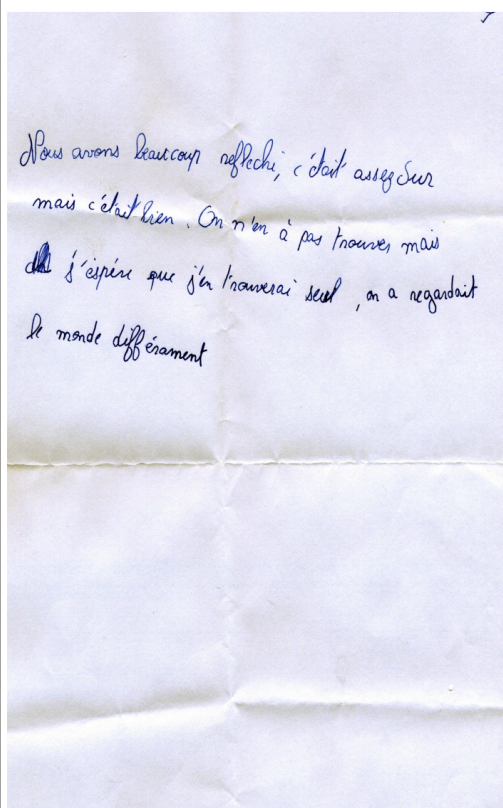 Nous avons beaucoup reflechi, c'était assez dur
mais c'était bien. On n'en à pas trouves mais
j'éspére que j'en trouverai seul, on a regardait
le monde différament